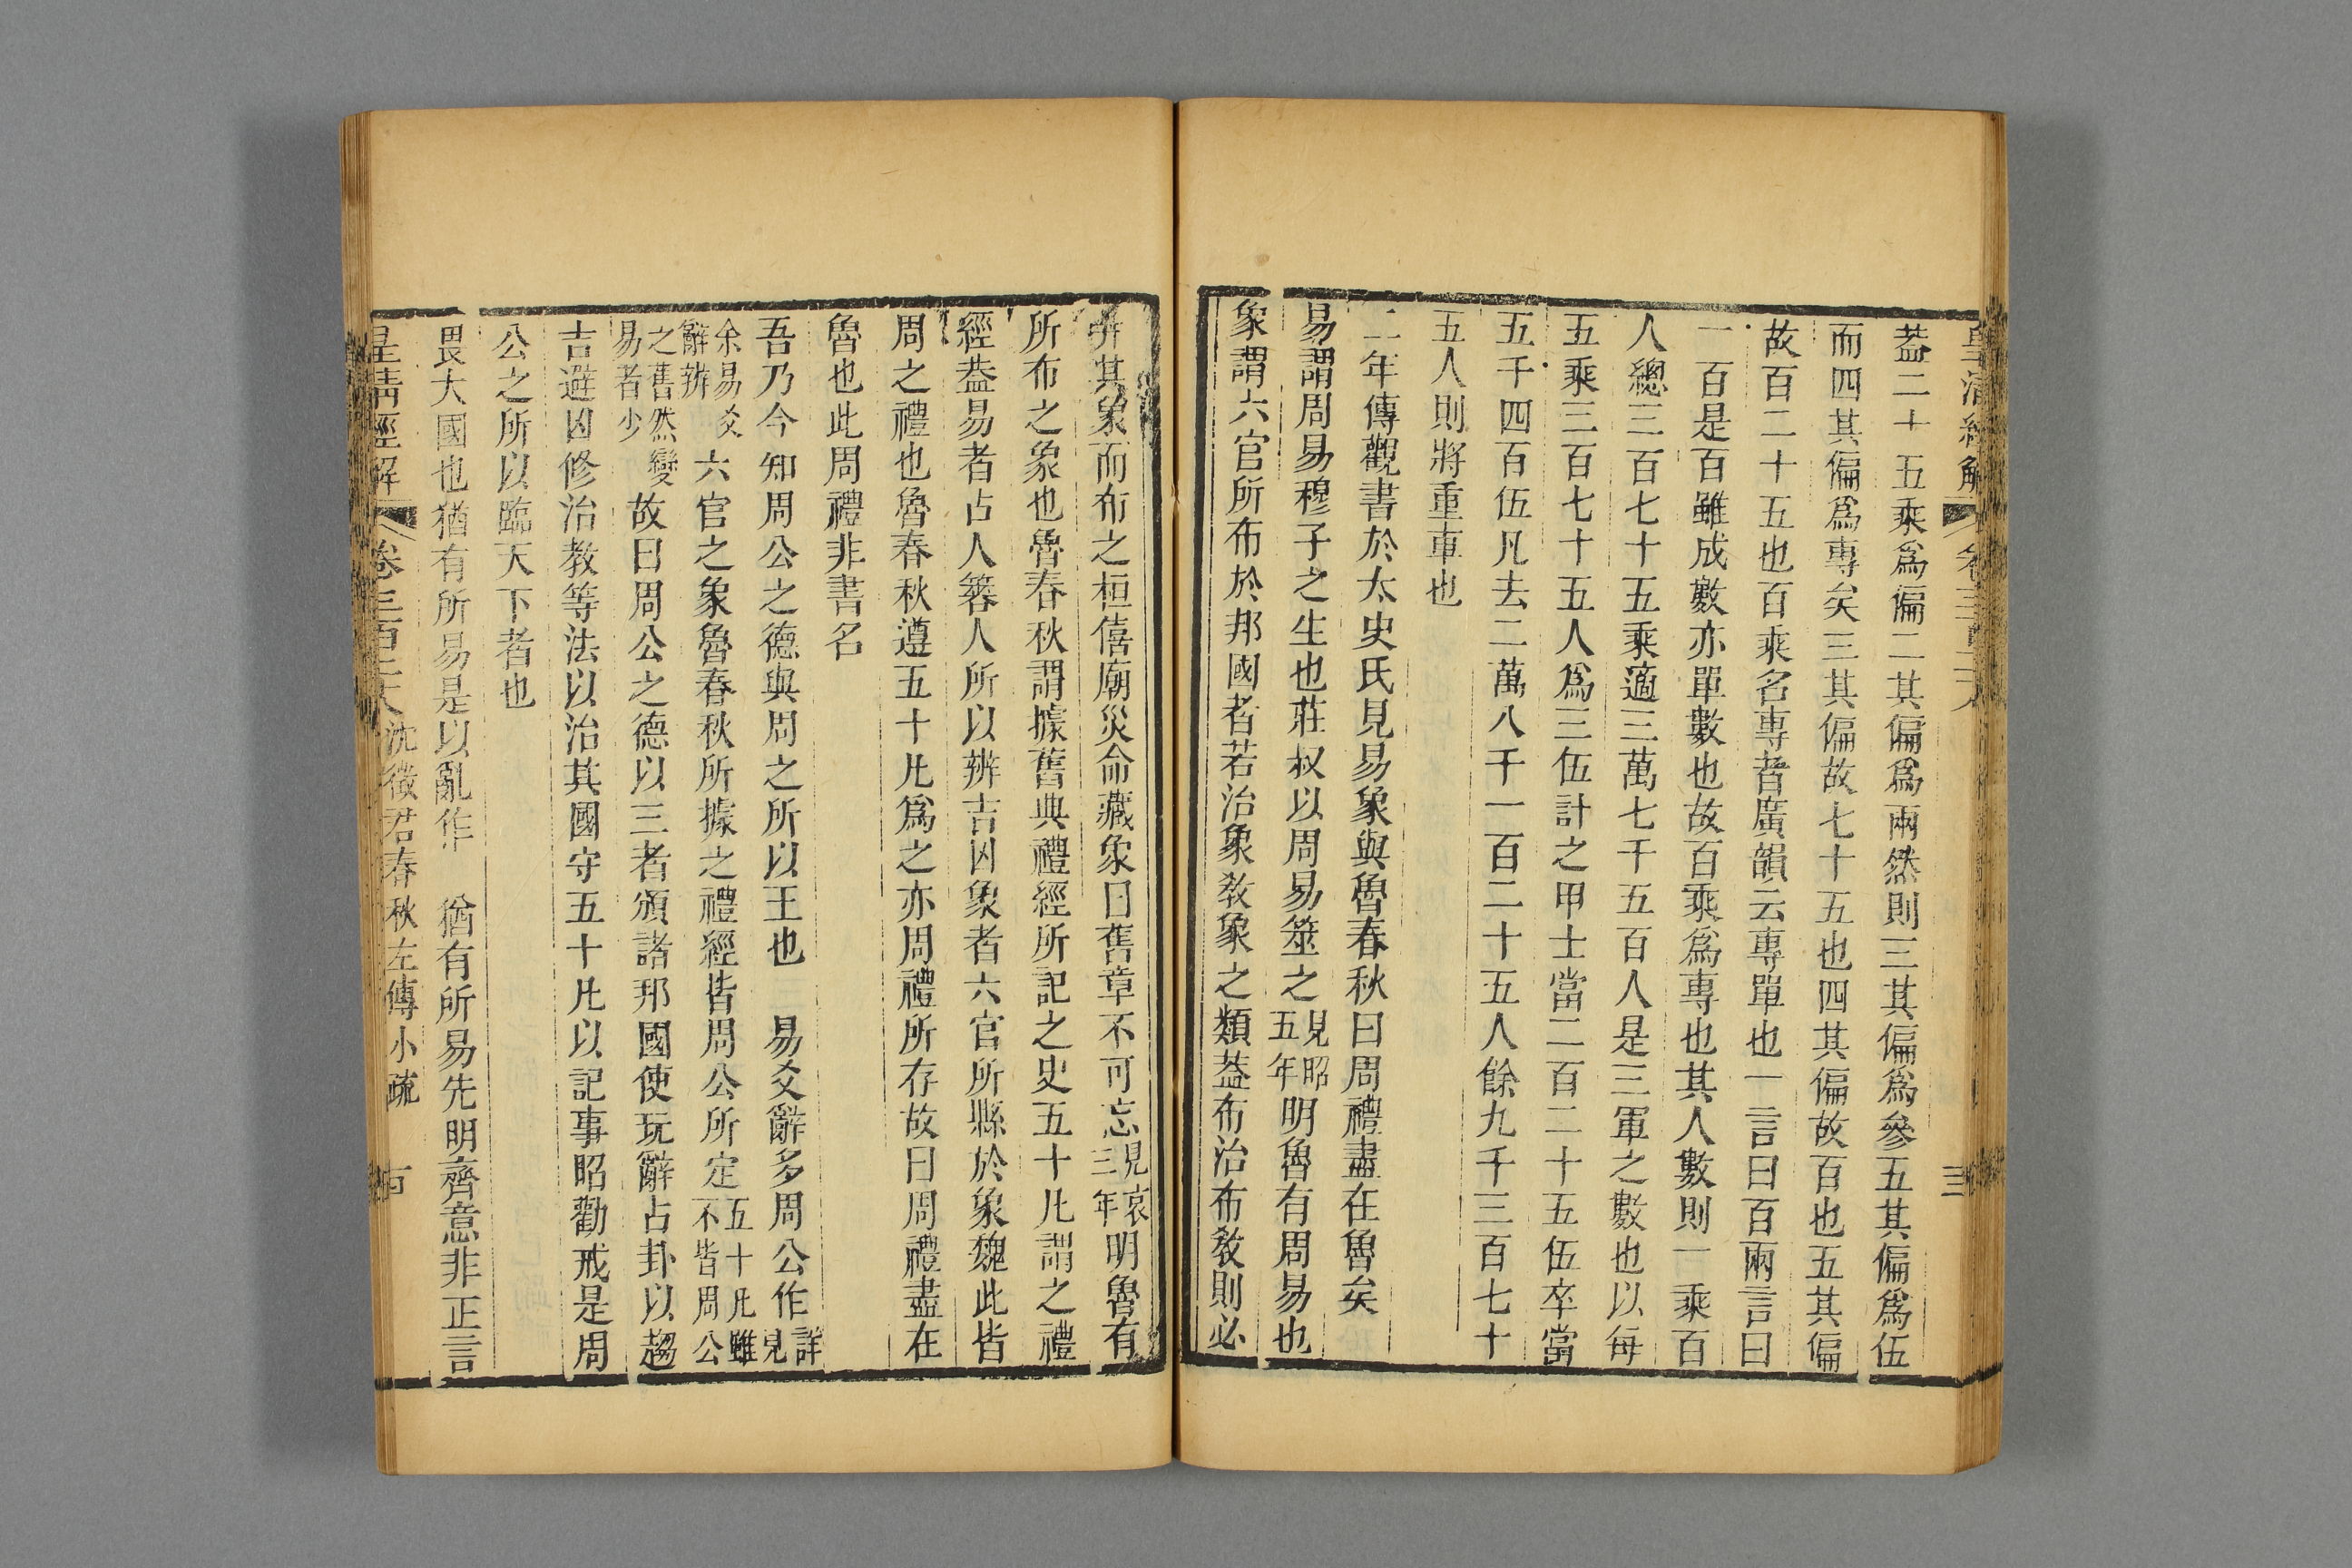 皇清經解 卷三百二十八 三
葢二十五乘爲偏二其偏爲兩然則三其偏爲參五其偏爲伍
而四其偏爲專矣三其偏故七十五也四其偏故百也五其偏
故百二十五也百乘名專者廣韻云專單也一言曰百兩言曰
一百是百雖成數亦單數也故百乘爲專也其人數則一乘百
人總三百七十五乘適三萬七千五百人是三軍之數也以每
五乘三百七十五人爲三伍計之甲士當二百二十五伍卒當
五千四百伍凡去二萬八千一百二十五人餘九千三百七十
五人則將重車也
二年傳觀書於太史氏見易象與魯春秋曰周禮盡在魯矣
易謂周易穆子之生也莊叔以周易筮之見昭五年明魯有周易也
象謂六官所布於邦國者若治象敎象之類葢布治布敎則必
并其象而布之桓僖廟災命藏象曰舊章不可忘見哀三年明魯有
所布之象也魯春秋謂據舊典禮經所記之史五十凡謂之禮
經葢易者占人簭人所以辨吉凶象者六官所縣於象魏此皆
周之禮也魯春秋遵五十凡爲之亦周禮所存故曰周禮盡在
魯也此周禮非書名
吾乃今知周公之德與周之所以王也 易爻辭多周公作詳見
余易爻辭辨六官之象魯春秋所據之禮經皆周公所定五十凡雖不皆周公
之舊然變易者少故曰周公之德以三者頒諸邦國使玩辭占卦以趨
吉避凶修治教等法以治其國守五十凡以記事昭勸戒是周
公之所以臨天下者也
畏大國也猶有所易是以亂作 猶有所易先明齊意非正言
皇清經解 卷三百二十八 沈徵君春秋左傳小疏 四